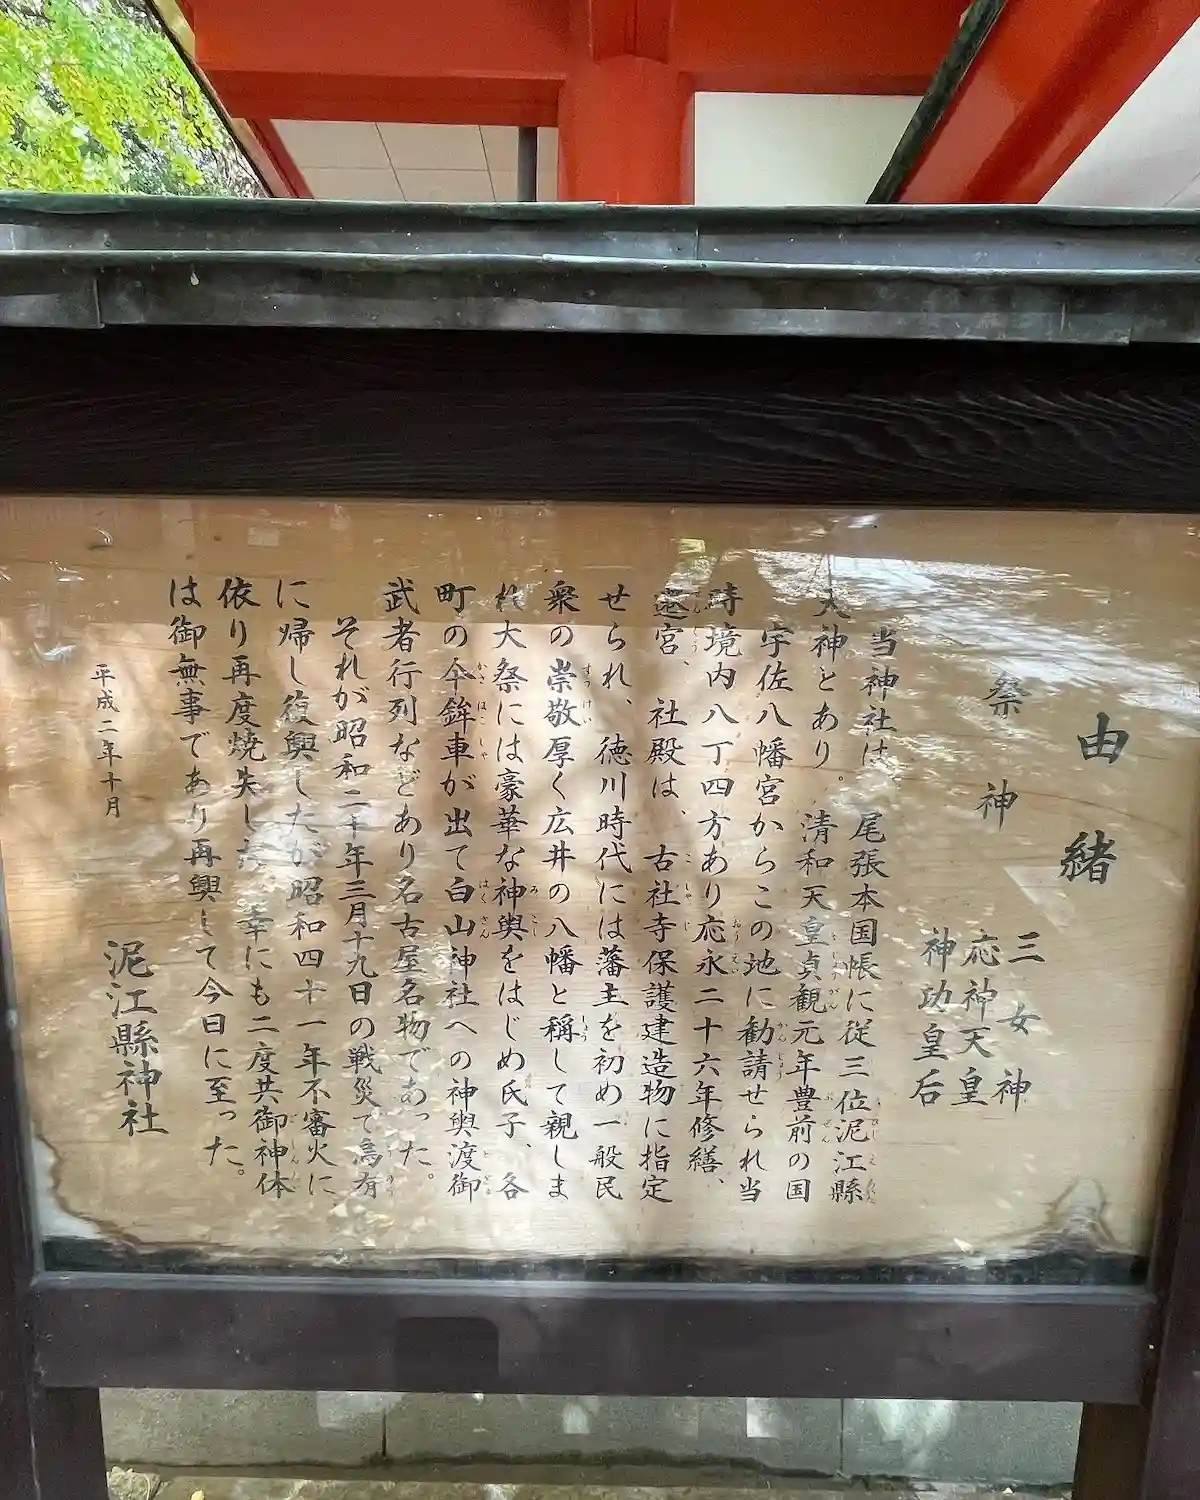 由緒
祭神
三女神
応神天皇
神功皇后
当神社は、尾張本国帳に従三位泥江縣
天神とあり。清和天皇貞観元年豊前の国
宇佐八幡宮からこの地に勧請せられ当
時境内八丁四方あり応永二十六年修繕、
遷宮、社殿は、古社寺保護建造物に指定
せられ、徳川時代には藩主を初め一般民
衆の崇敬厚く広井の八幡と稱して親しま
れ大祭には豪華な神輿をはじめ氏子、各
町の傘鉾車が出て白山神社への神輿渡御
武者行列などあり名古屋名物であった。
それが昭和二十年三月十九日の戦災で烏有
に帰し復興したが昭和四十一年不審火に
依り再度焼失した 幸にも二度共御神体
は御無事であり再興して今日に至った。
平成二年十月
泥江縣神社